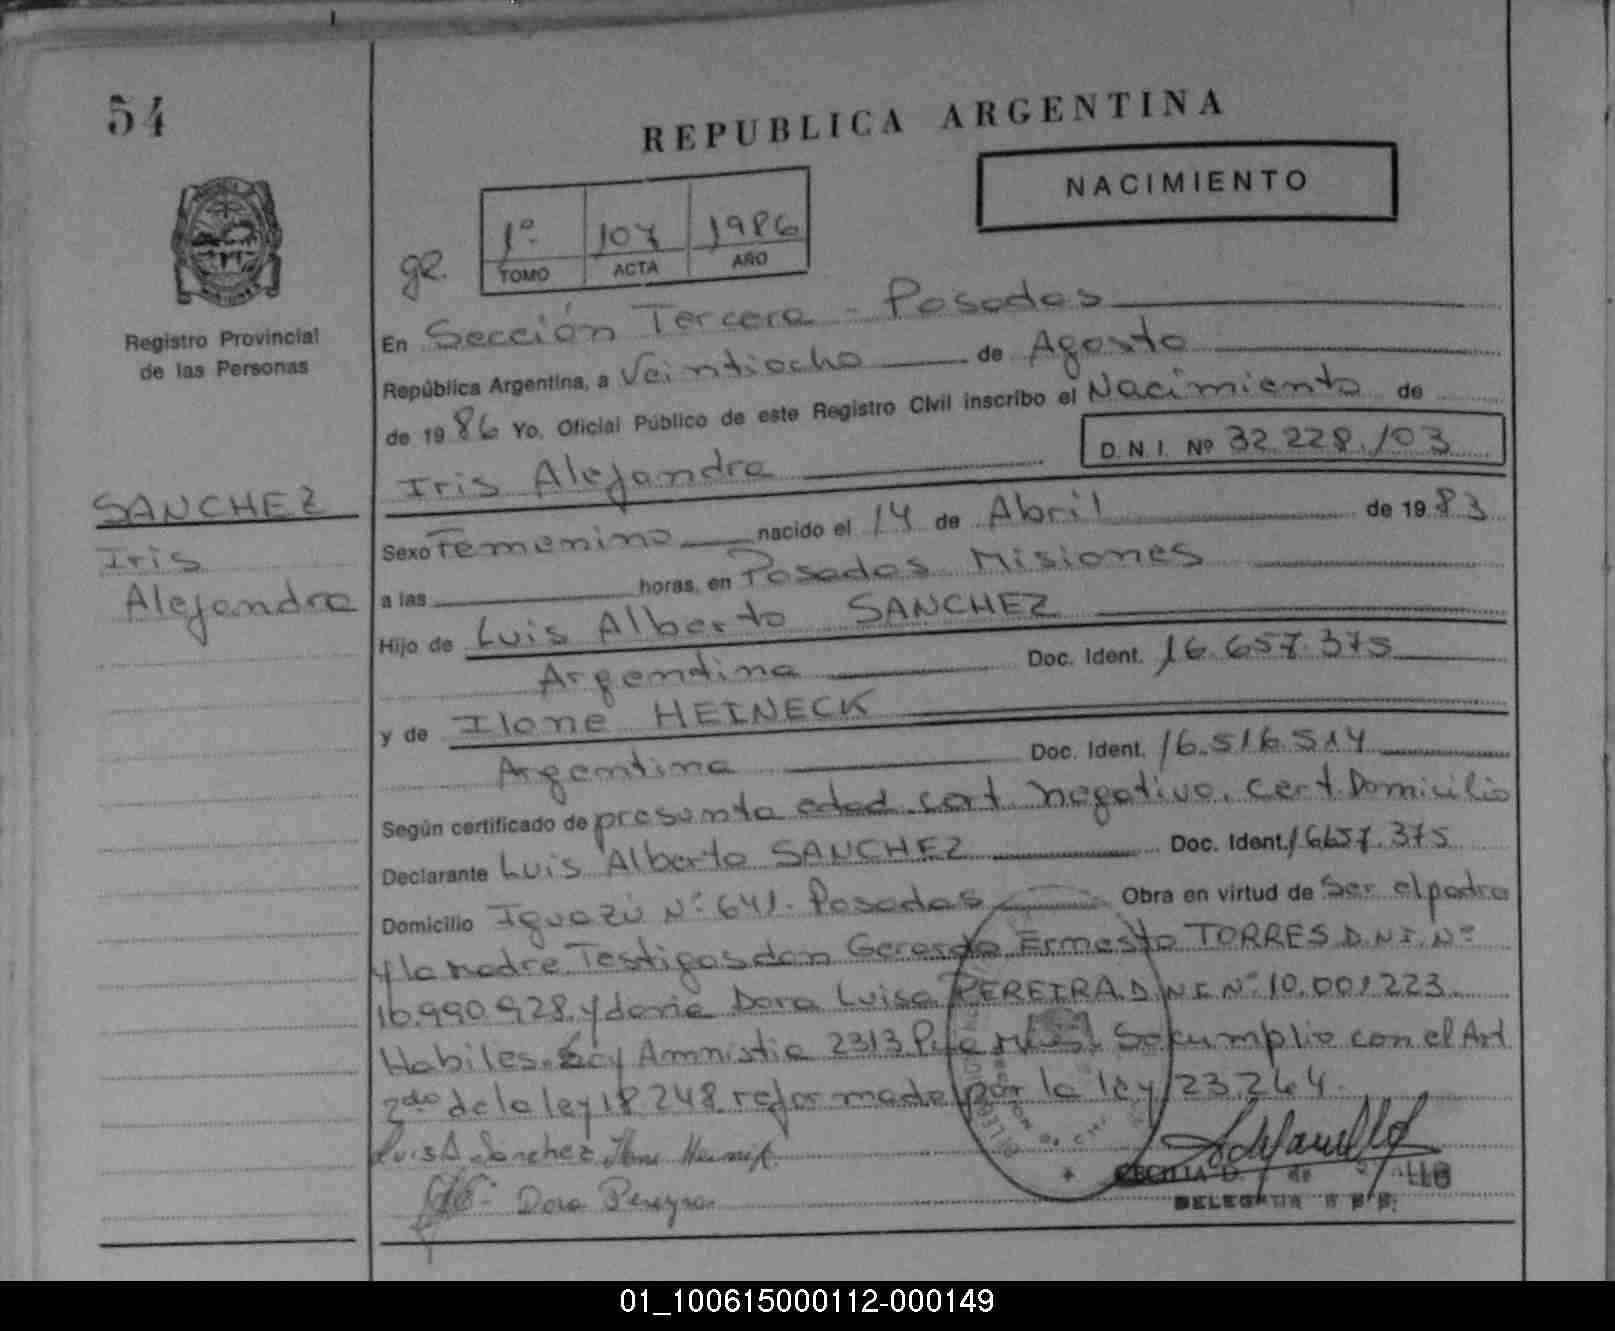 54
REPUBLICA ARGENTINA
NACIMIENTO
1º 107 1986
TOMO ACTA AÑO
Registro Provincial
de las Personas
En Sección Tercera - Posadas
República Argentina, a Veintiocho de Agosto
de 1986 Yo, Oficial Público de este Registro Civil inscribo el Nacimiento de
Iris Alejandra D. N. I. Nº 32.228.103
SANCHEZ
Iris
Alejandra
Sexo Femenino nacido el 14 de Abril de 1983
a las horas, en Posadas Misiones
Hijo de Luis Alberto SANCHEZ
Argentina Doc. Ident. 16.657.375
y de Ilone HEINECK
Argentina Doc. Ident. 16.516.514
Según certificado de presunta edad cert. negativo, cert. Domicilio
Declarante Luis Alberto SANCHEZ Doc. Ident. 16657.375
Domicilio Iguazú Nº 641. Posadas Obra en virtud de Ser el padre
y la madre. Testigos don Gerardo Ermesto TORRES D.N.I. Nº
10.990.928. y doña Dora Luisa PEREIRA D.N.I Nº 10.001223.
Habiles. Ley Amnistia 2313 Se cumplio con el Art
2do de la ley 18.248 reformada por la ley 23.264.
Luis A. Sánchez
Dora Pereyra
CECILIA D. de
DELEGADA
01_100615000112-000149